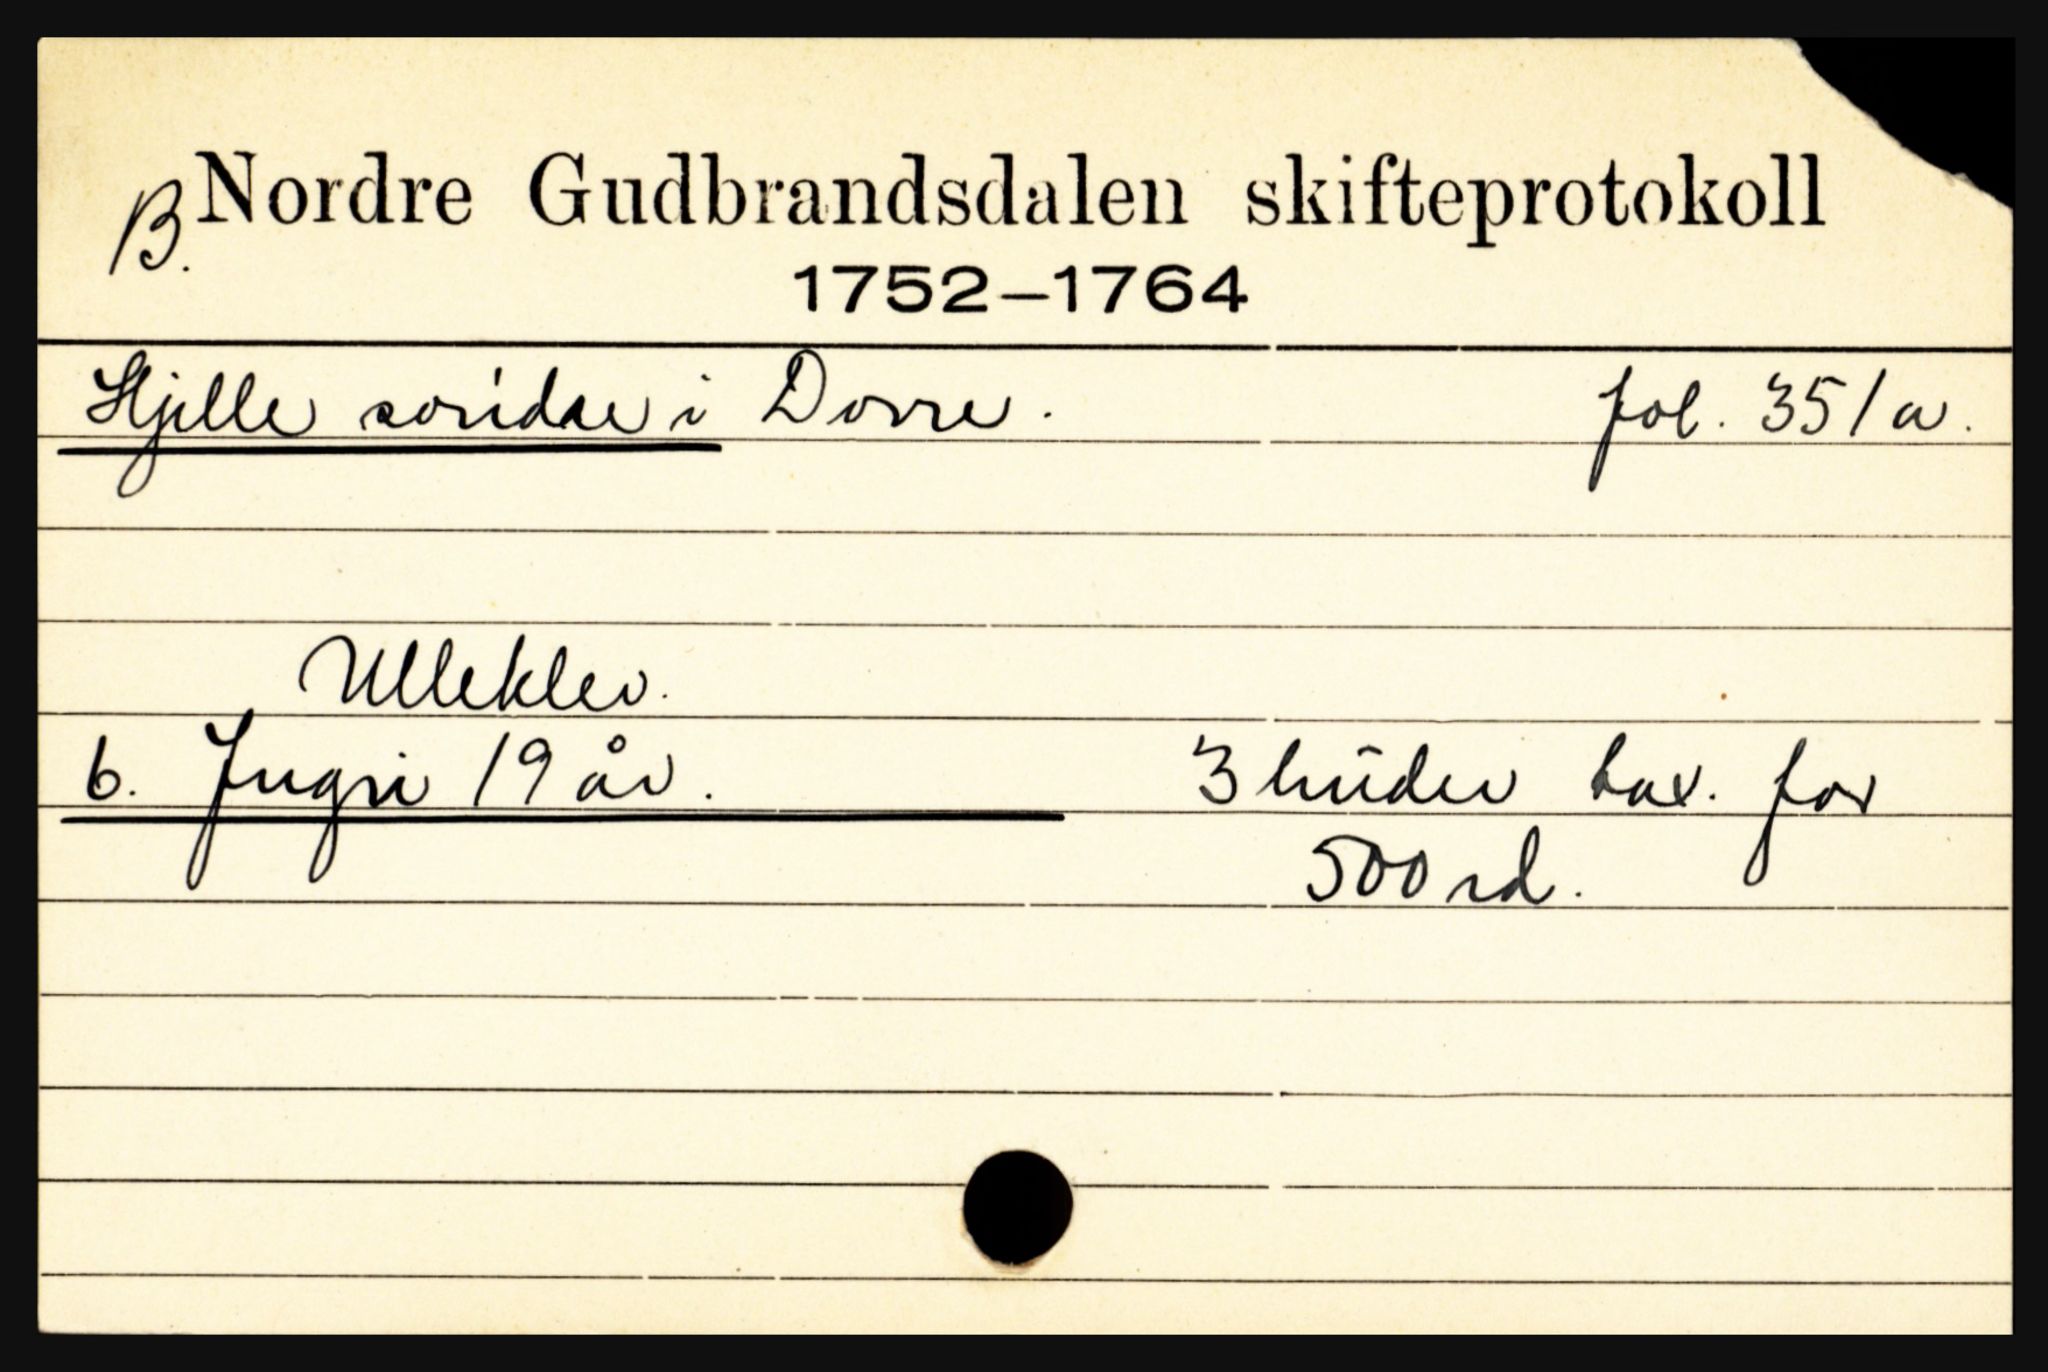 B. Nordre Gudbrandsdalen skifteprotokoll
1752-1764
Hjelle søndre i Dovre. fol. 351a.
Ulleklev.
6. Ingri 19 år. 3 huder tax. for
500 rd.